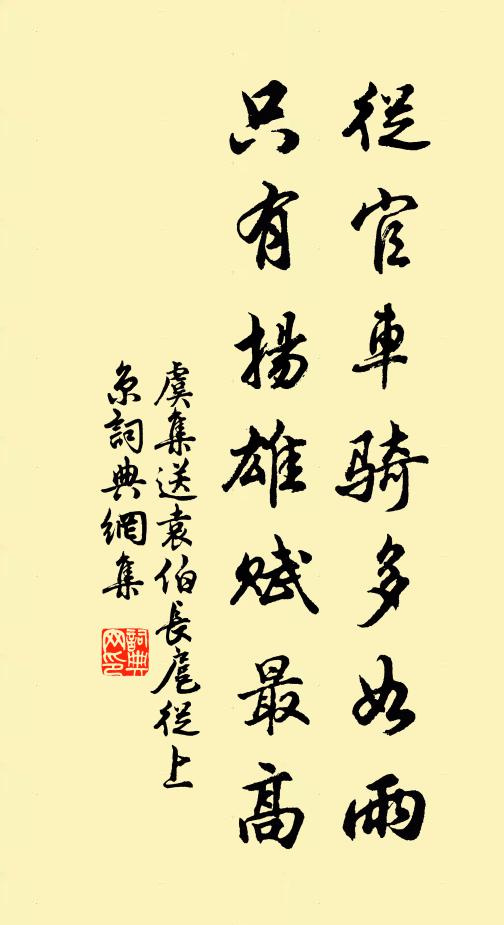 從官車騎多如雨
只有揚雄賦最高
虞集送袁伯長扈從上
京詞典網集
詞典网印